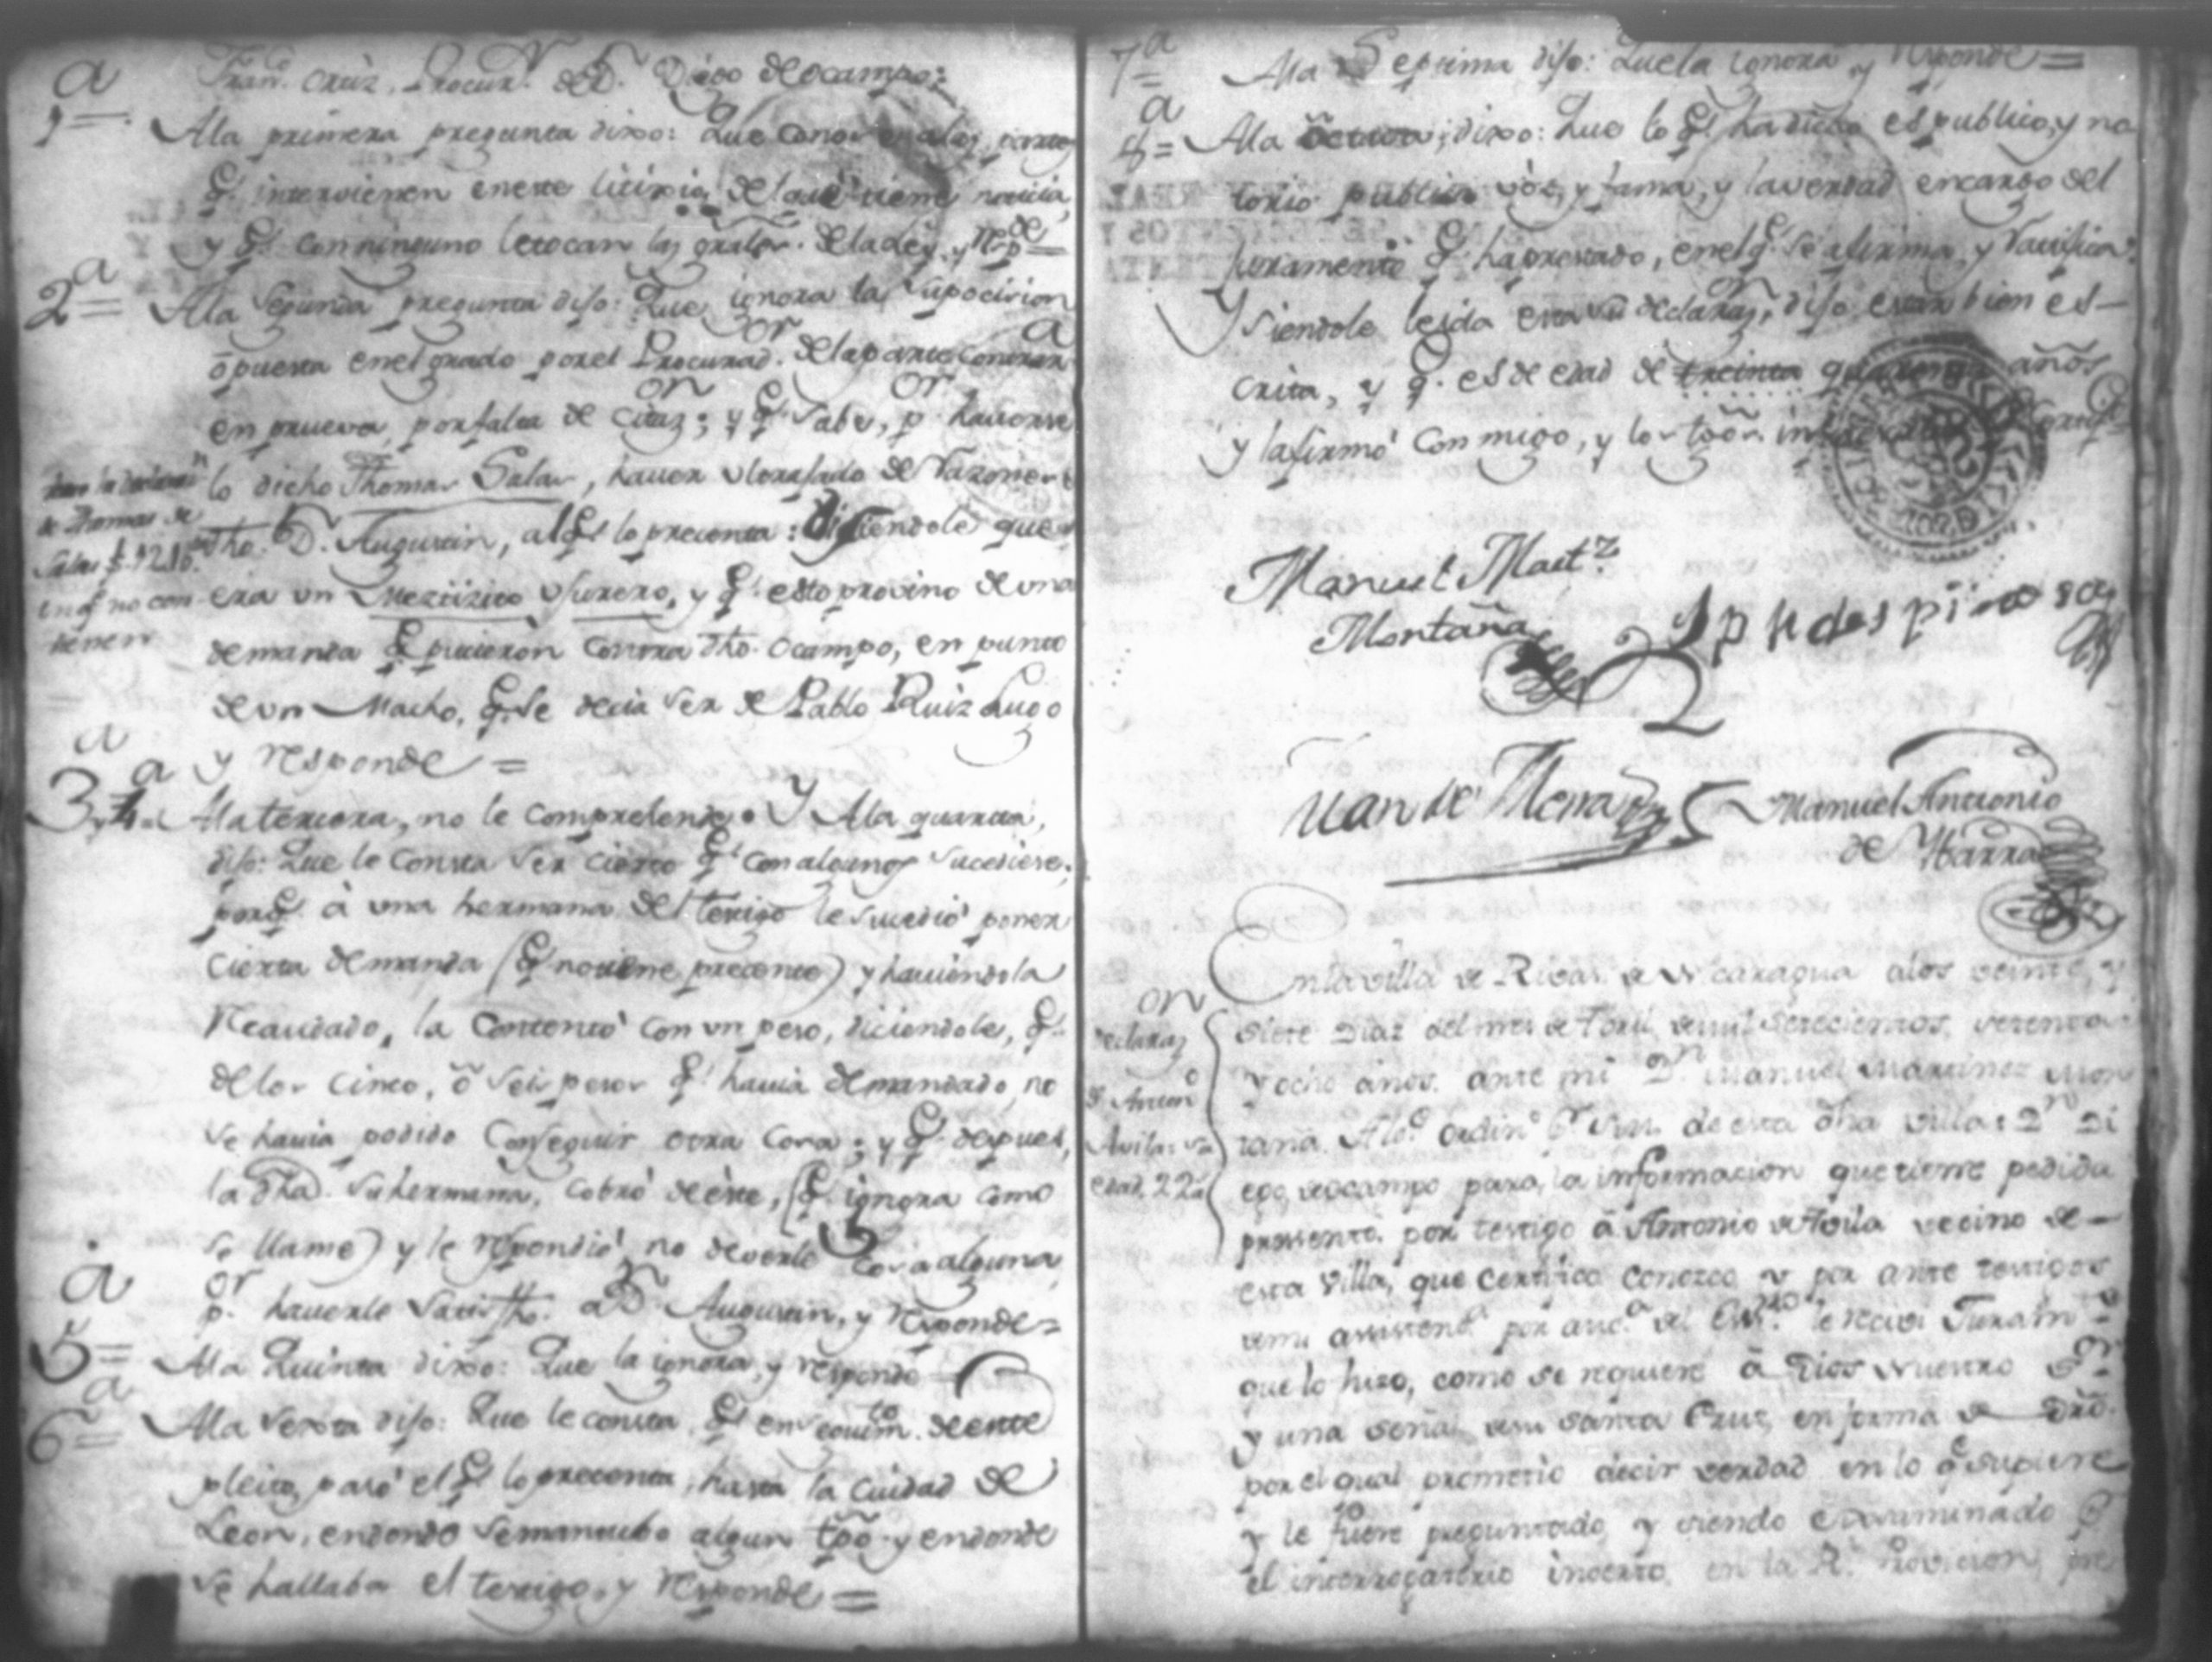 Fran.co Cruz, Procur.r de D.n Diego de Ocampo:
1a= Ala primera pregunta dixo: Que Conoce alas partes
q.e intervienen eneste litixio, de laque tiene noticia,
y q.e con ninguno letocan las grales. dela Ley, y Resp.de=
2a= Ala Segunda pregunta dijo: Que ignora la Supocicion
opuesta enel grado porel Procurad.or dela parte Contrar.a
en prueva, porfalta de citaz.on; y q.e Save, p.or haverse
lo dicho Thomas Salas, haver Ultrajado de Razones
dho. D.n Augustin, alq.e lo precenta: disiendole que
era un Mestizito Usurero, y q.e esto provino de una
demanda q.e pucieron Contra dho. Ocampo, en punto
de un Macho, q.e Se decia Ser de Pablo Ruiz Lugo
y responde=
de Thomas de
Salas
en q.e no con-
tienen
3a y 4a= Ala tercera, no le comprehende. Y Ala quarta,
dijo: Que le Consta Ser Cierto q.e Con algunos Sucediese;
porq.e à una hermana del testigo le Sucedió poner
cierta demanda (q.e notiene precente) y haviendola
Recaudado, la Contentó Con un peso, diciendole, q.e
delos cinco, ó Seis pesos q.e havia demandado, no
Se havia podido Conseguir otra Cosa; y q.e despues,
la dha. Su hermana, cobró de este, (q.e ignora como
Se llame) y le respondió, no deverle Cosa alguna,
p.or haverle Satisfho. a D.n Augustin, y Responde=
5a= Ala Quinta dixo: Que la ignora, y responde
6a= Ala Sexta dijo: Que le consta, q.e en Seguim.to de este
pleito, pasó el q.e lo precenta, hasta la Ciudad de
Leon, endonde Semantubo algun tpõ. y endonde
Se hallaba el testigo, y Responde=
7a= Ala Septima dijo: Quela ignora, y Responde=
8a= Ala Octava, dixo: Que lo q.e ha dicho es publico, y no
torio publica vòz, y fama, y la verdad encargo del
juramento q.e ha prestado, enel q.e Se afirma, y Ratifica:
Y Siendole leida esta su declaraz.on, dijo estar bien es-
crita, y q.e es de edad de treinta quarenta años
y la firmó Conmigo, y los tgõs.
Manuel Mart.z
Montaña
Jph despinosa
Juan de Mena
Manuel Antonio
de Ybarra
Declaraz.on
d. Anton.o
Avila: su
edad 22 a
En la villa de Rivas de Nicaragua alos veinte, y
siete Dias del mes de Abril, de mil Setecientos, setenta
y ocho años. ante mi D.n Manuel Martinez Mon
taña Alc.e Ordin.o de esta dha villa: D.n Di
ego de Ocampo para la informacion que tiene pedida
presentó por testigo à Antonio de Avila vecino de-
esta Villa, que Certifico Conozco y por ante testigos
de mi assistenc.a por aus.a del Ess.no le recivi Juram.to
que lo hizo, como se requiere á Dios Nuestro S.or
y una Señal desu Santa Cruz, en forma de Dro.
por el qual prometio decir verdad en lo q.e supiere
y le fuere preguntado, y siendo examinado
el interrogatorio inserto, en la R.l Provicion, pre